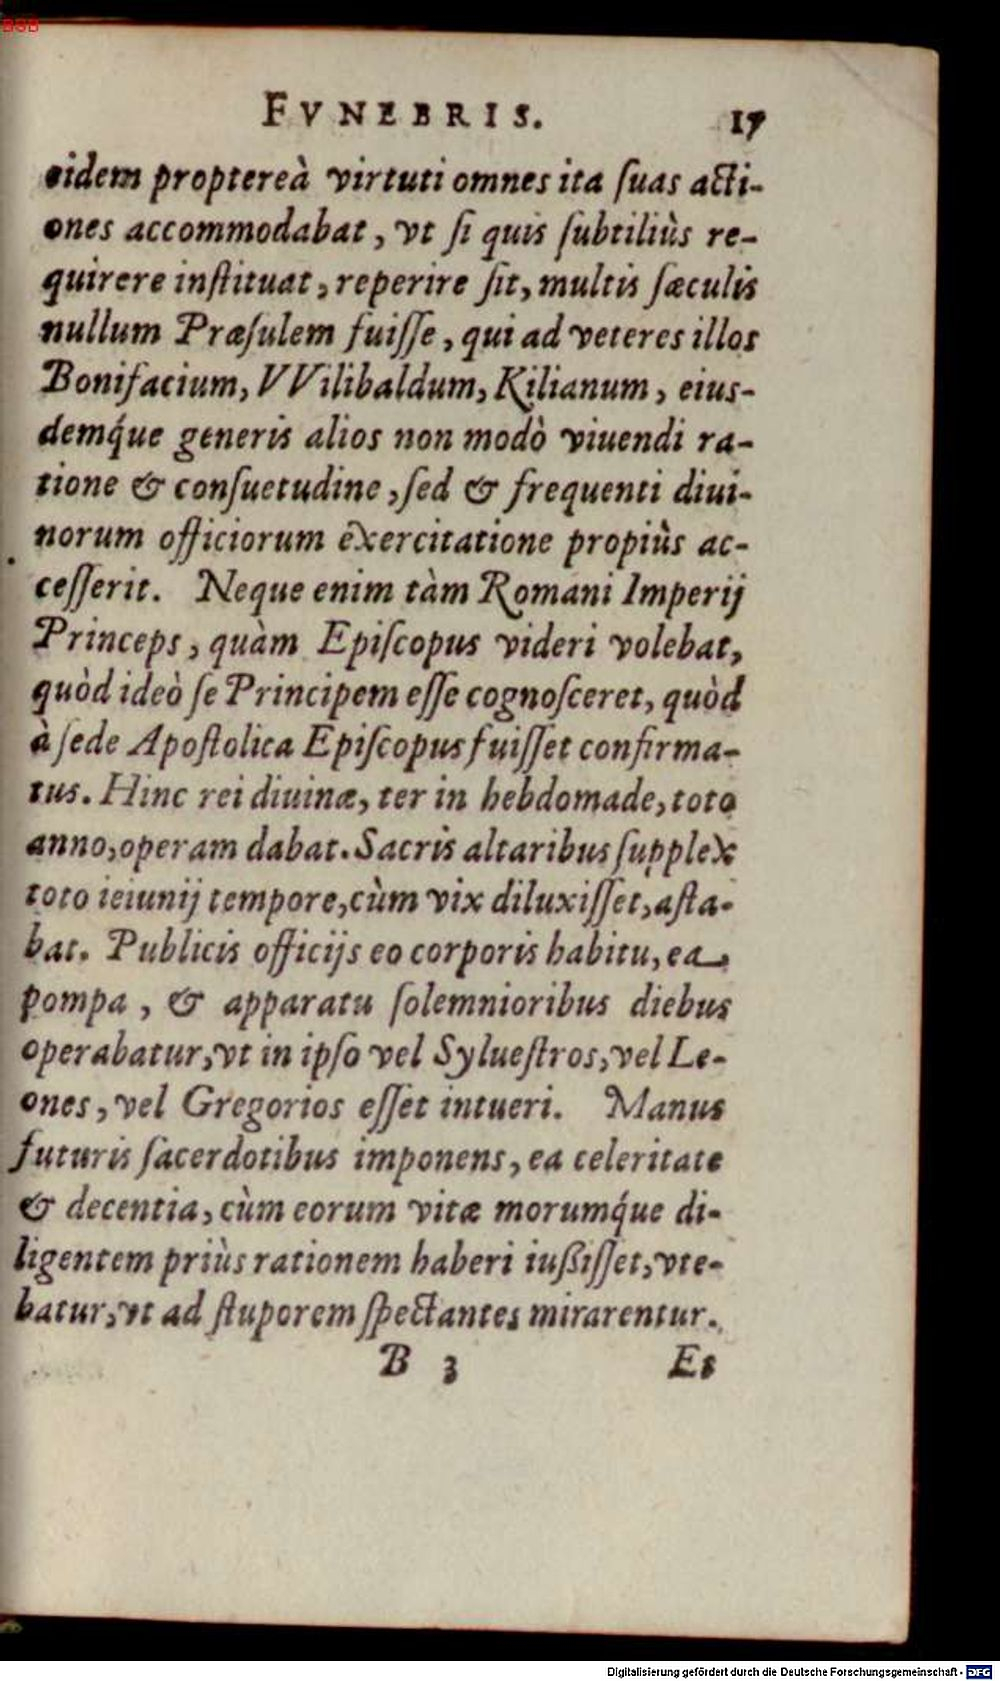 BSB
FVNEBRIS. 17
eidem proptereà virtuti omnes ita ſuas acti-
ones accommodabat, vt ſi quis ſubtiliùs re-
quirere inſtituat, reperire ſit, multis ſæculis
nullum Præſulem fuiſſe, qui ad veteres illos
Bonifacium, VVilibaldum, Kilianum, eius-
demq́ue generis alios non modò viuendi ra-
tione & conſuetudine, ſed & frequenti diui-
norum officiorum exercitatione propiùs ac-
ceſſerit. Neque enim tàm Romani Imperij
Princeps, quàm Epiſcopus videri volebat,
quòd ideò ſe Principem eſſe cognoſceret, quòd
à ſede Apoſtolica Epiſcopus fuiſſet confirma-
tus. Hinc rei diuinæ, ter in hebdomade, toto
anno, operam dabat. Sacris altaribus ſupplex
toto ieiunij tempore, cùm vix diluxiſſet, aſta-
bat. Publicis officijs eo corporis habitu, ea
pompa, & apparatu ſolemnioribus diebus
operabatur, vt in ipſo vel Sylueſtros, vel Le-
ones, vel Gregorios eſſet intueri. Manus
futuris ſacerdotibus imponens, ea celeritate
& decentia, cùm eorum vitæ morumq́ue di-
ligentem priùs rationem haberi iußiſſet, vte-
batur, vt ad ſtuporem ſpectantes mirarentur.
B 3 Et
Digitalisierung gefördert durch die Deutsche Forschungsgemeinschaft - DFG